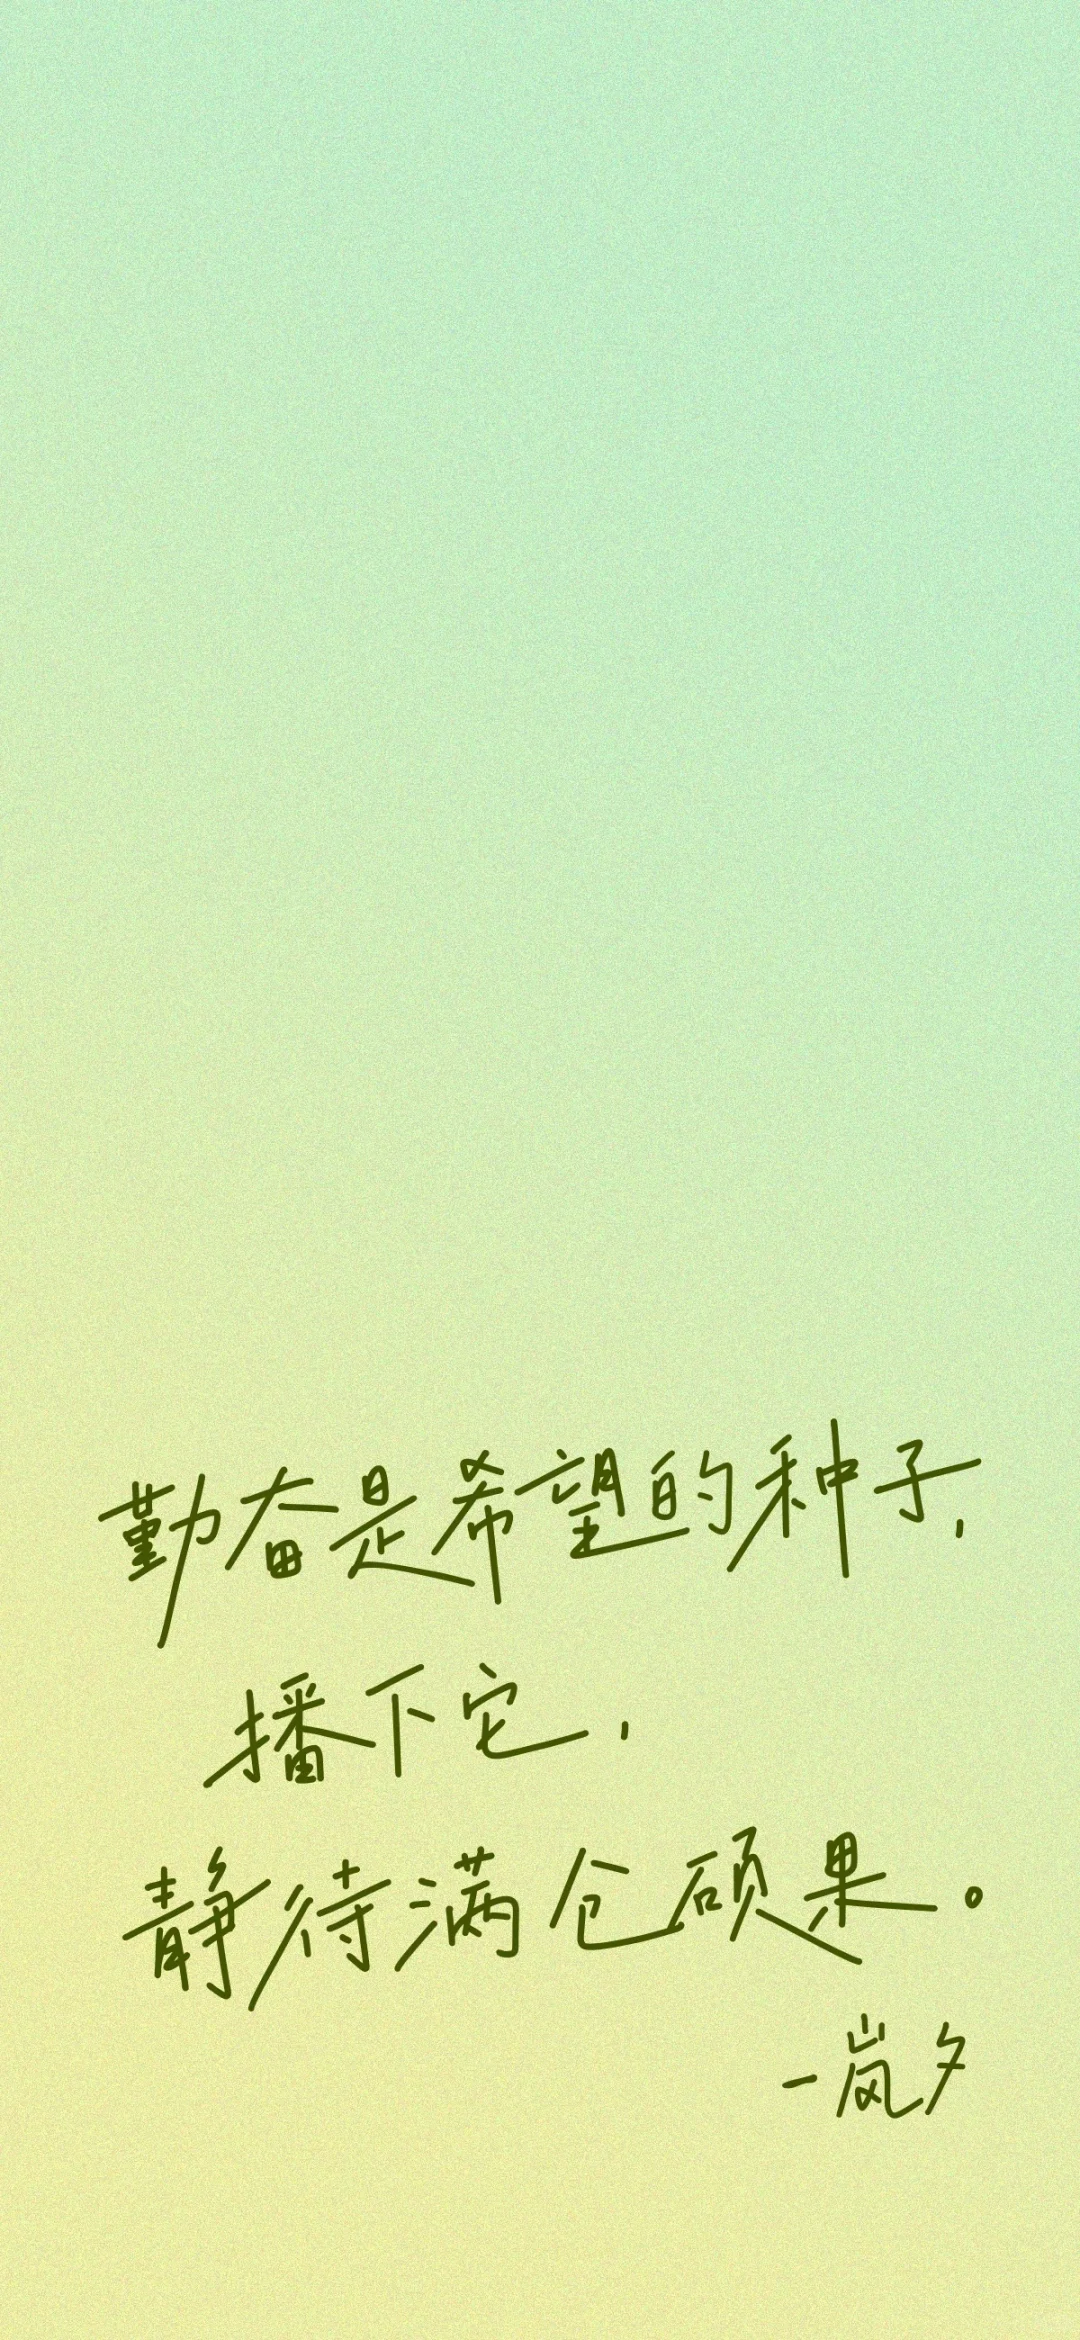 勤奋是希望的种子，
播下它，
静待满仓硕果。
—岚夕